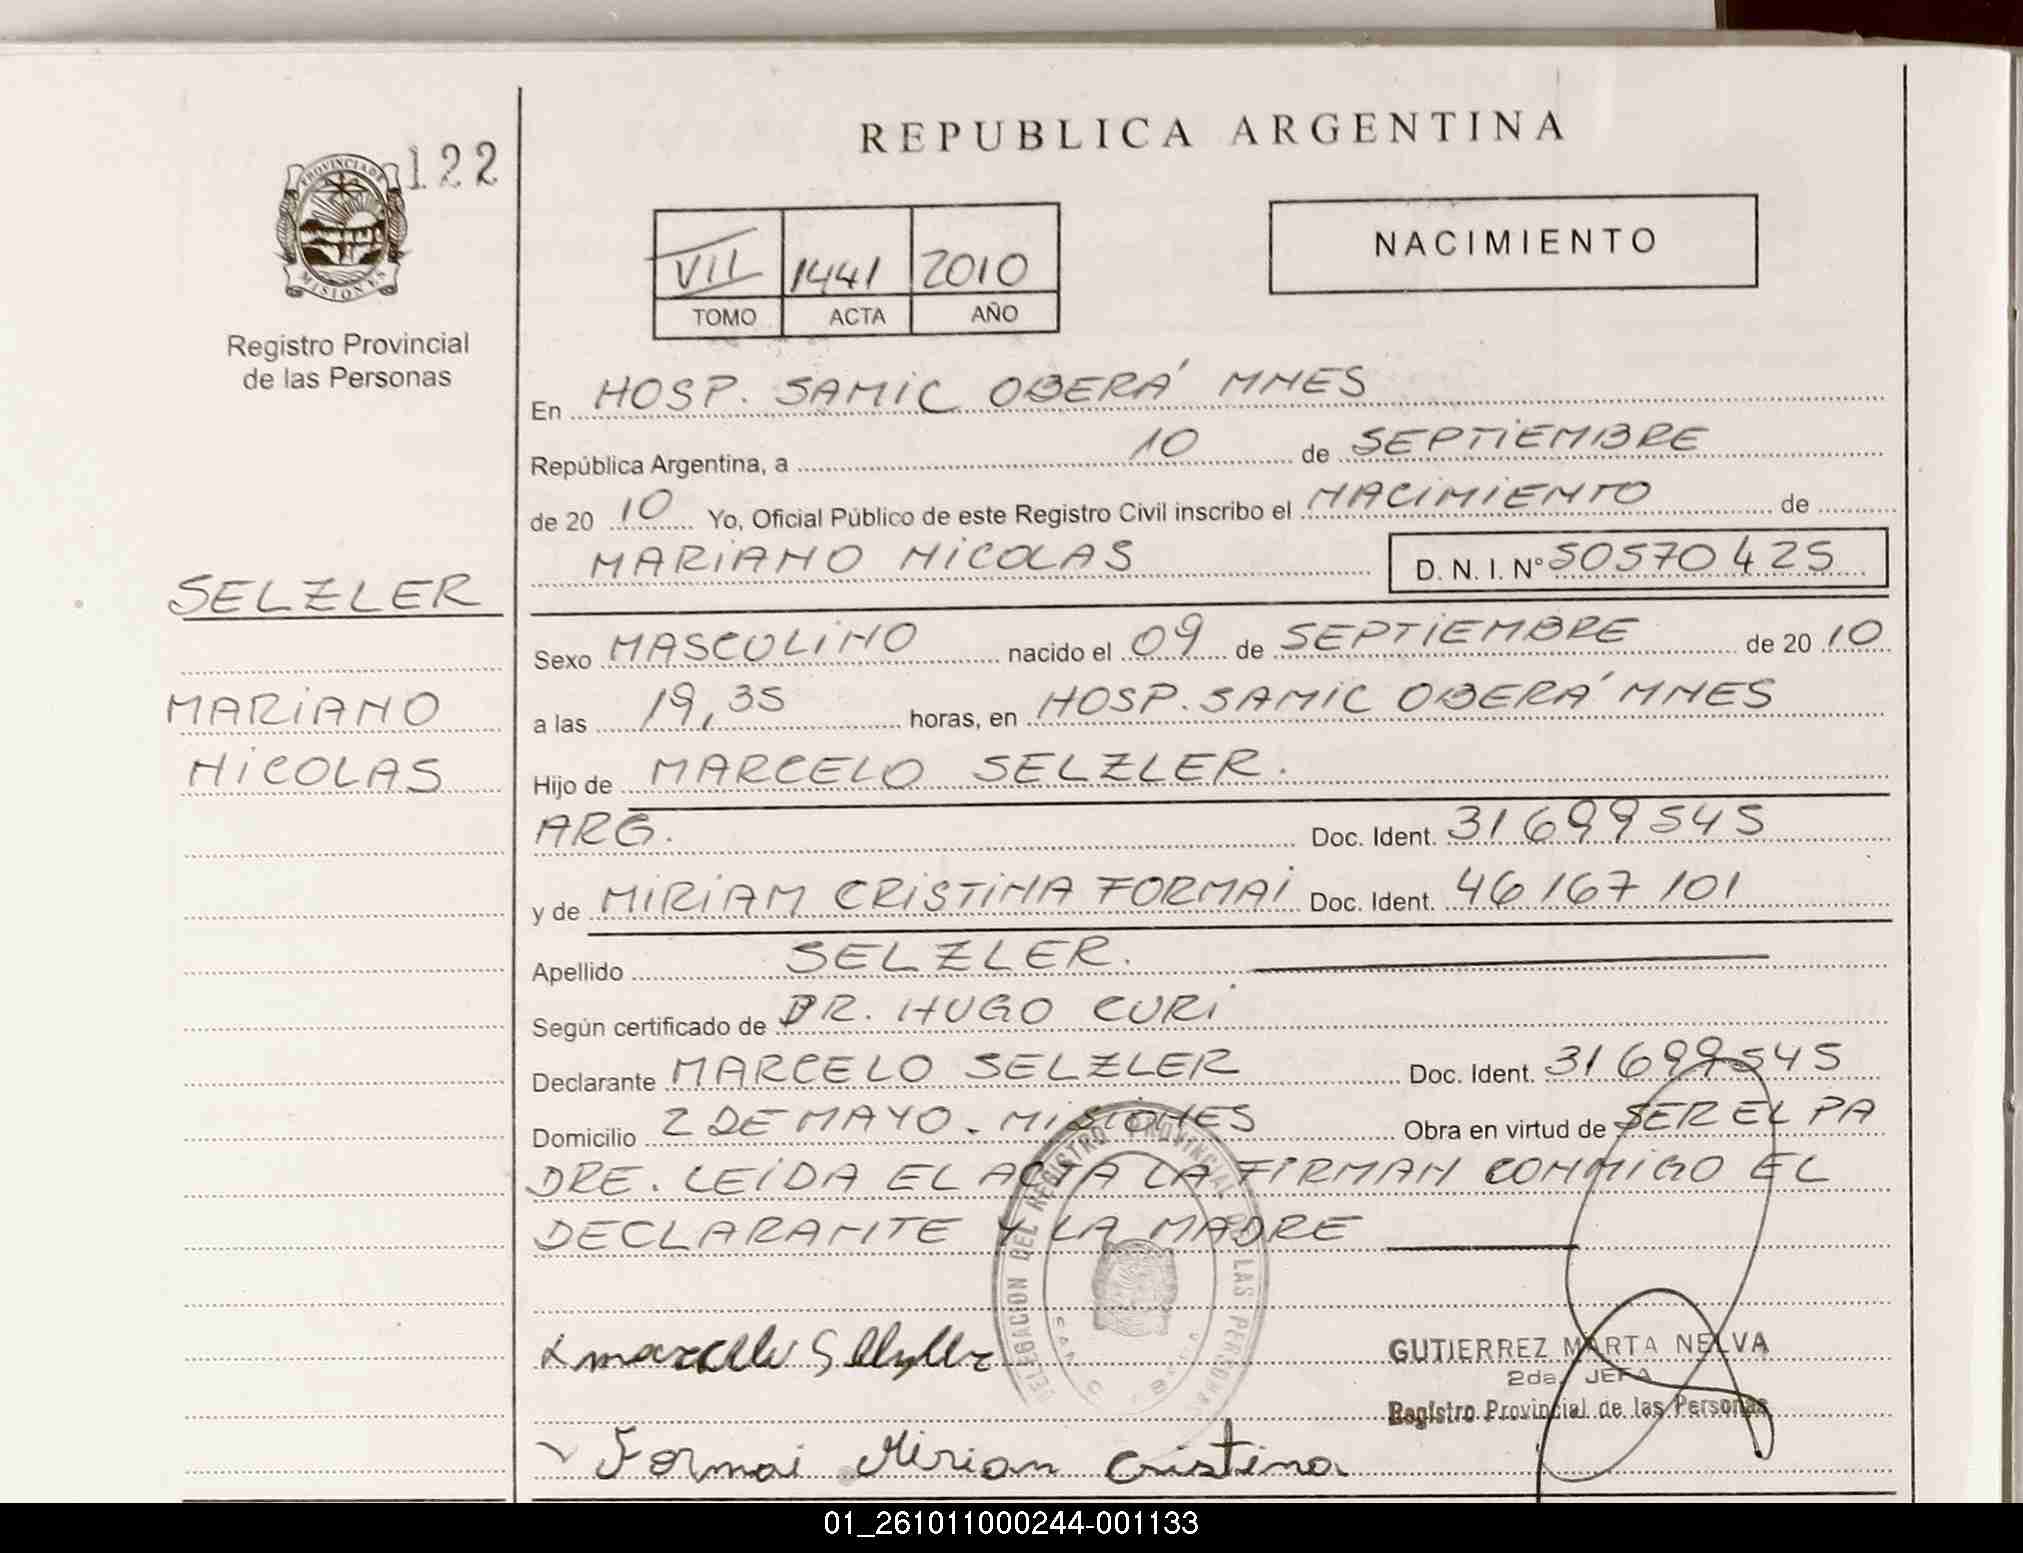 REPUBLICA ARGENTINA
122
PROVINCIA DE
MISIONES
Registro Provincial
de las Personas
VII 1441 2010
TOMO ACTA AÑO
NACIMIENTO
En HOSP. SAMIC OBERÁ MNES
República Argentina, a 10 de SEPTIEMBRE
de 20 10 Yo, Oficial Público de este Registro Civil inscribo el NACIMIENTO de
MARIANO NICOLAS D. N. I. N° 50570425
SELZLER
MARIANO
NICOLAS
Sexo MASCULINO nacido el 09 de SEPTIEMBRE de 20 10
a las 19,35 horas, en HOSP. SAMIC OBERÁ MNES
Hijo de MARCELO SELZLER.
ARG. Doc. Ident. 31699545
y de MIRIAM CRISTINA FORMAI Doc. Ident. 46167101
Apellido SELZLER.
Según certificado de DR. HUGO CURI
Declarante MARCELO SELZLER Doc. Ident. 31699545
Domicilio 2 DE MAYO. MISIONES Obra en virtud de SER EL PA
DRE. LEIDA EL ACTA LA FIRMAN CONMIGO EL
DECLARANTE Y LA MADRE
DELEGACION DEL REGISTRO PROVINCIAL DE LAS PERSONAS
GUTIERREZ MARTA NELVA
2da. JEFA
Registro Provincial de las Personas
Formai Mirian Cristina
01_261011000244-001133